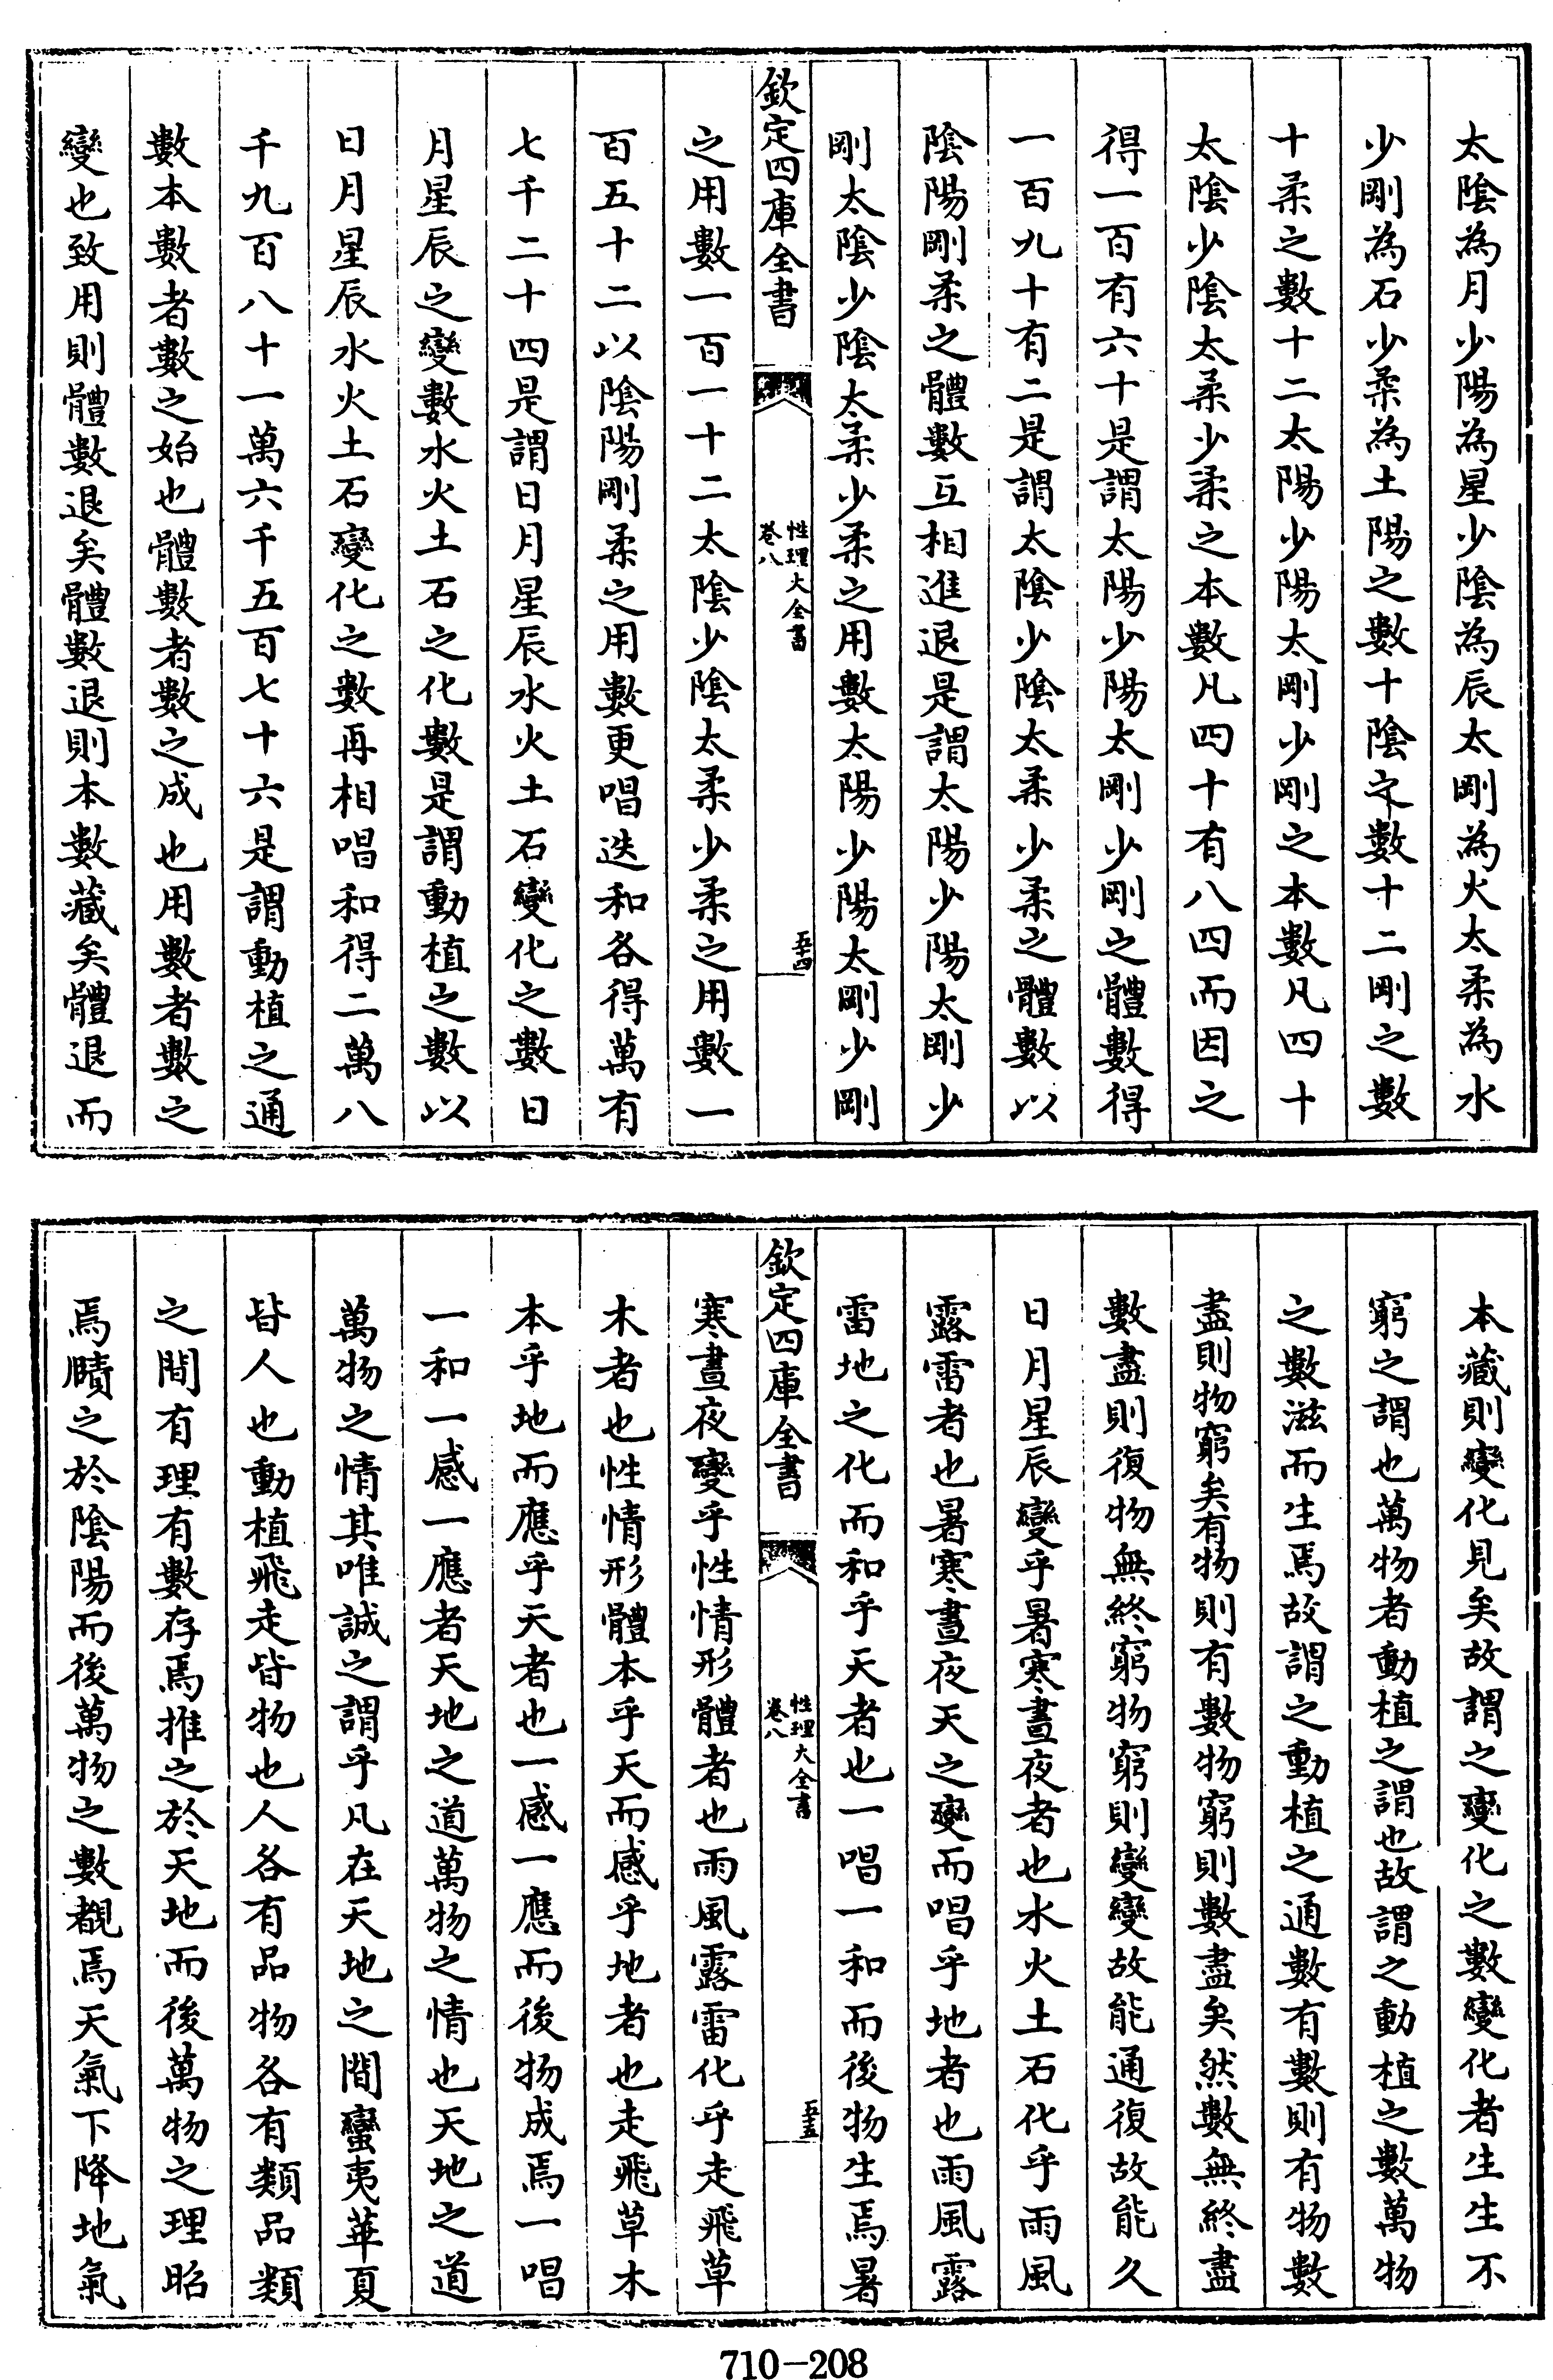 太陰為月少陽為星少陰為辰太剛為火太柔為水
少剛為石少柔為土陽之數十陰之數十二剛之數
十柔之數十二太陽少陽太剛少剛之本數凡四十
太陰少陰太柔少柔之本數凡四十有八四而因之
得一百有六十是謂太陽少陽太剛少剛之體數得
一百九十有二是謂太陰少陰太柔少柔之體數以
陰陽剛柔之體數互相進退是謂太陽少陽太剛少
剛太陰少陰太柔少柔之用數太陽少陽太剛少剛
欽定四庫全書
性理大全書
卷八
五十四
之用數一百一十二太陰少陰太柔少柔之用數一
百五十二以陰陽剛柔之用數更唱迭和各得萬有
七千二十四是謂日月星辰水火土石變化之數日
月星辰之變數水火土石之化數是謂動植之數以
日月星辰水火土石變化之數再相唱和得二萬八
千九百八十一萬六千五百七十六是謂動植之通
數本數者數之始也體數者數之成也用數者數之
變也致用則體數退矣體數退則本數藏矣體退而
本藏則變化見矣故謂之變化之數變化者生生不
窮之謂也萬物者動植之謂也故謂之動植之數萬物
之數滋而生焉故謂之動植之通數有數則有物數
盡則物窮矣有物則有數物窮則數盡矣然數無終盡
數盡則復物無終窮物窮則變變故能通復故能久
日月星辰變乎暑寒晝夜者也水火土石化乎雨風
露雷者也暑寒晝夜天之變而唱乎地者也雨風露
雷地之化而和乎天者也一唱一和而後物生焉暑
欽定四庫全書
性理大全書
卷八
五十五
寒晝夜變乎性情形體者也雨風露雷化乎走飛草
木者也性情形體本乎天而感乎地者也走飛草木
本乎地而應乎天者也一感一應而後物成焉一唱
一和一感一應者天地之道萬物之情也天地之道
萬物之情其唯誠之謂乎凡在天地之間蠻夷華夏
皆人也動植飛走皆物也人各有品物各有類品類
之間有理有數存焉推之於天地而後萬物之理昭
焉賾之於陰陽而後萬物之數覩焉天氣下降地氣
710-208